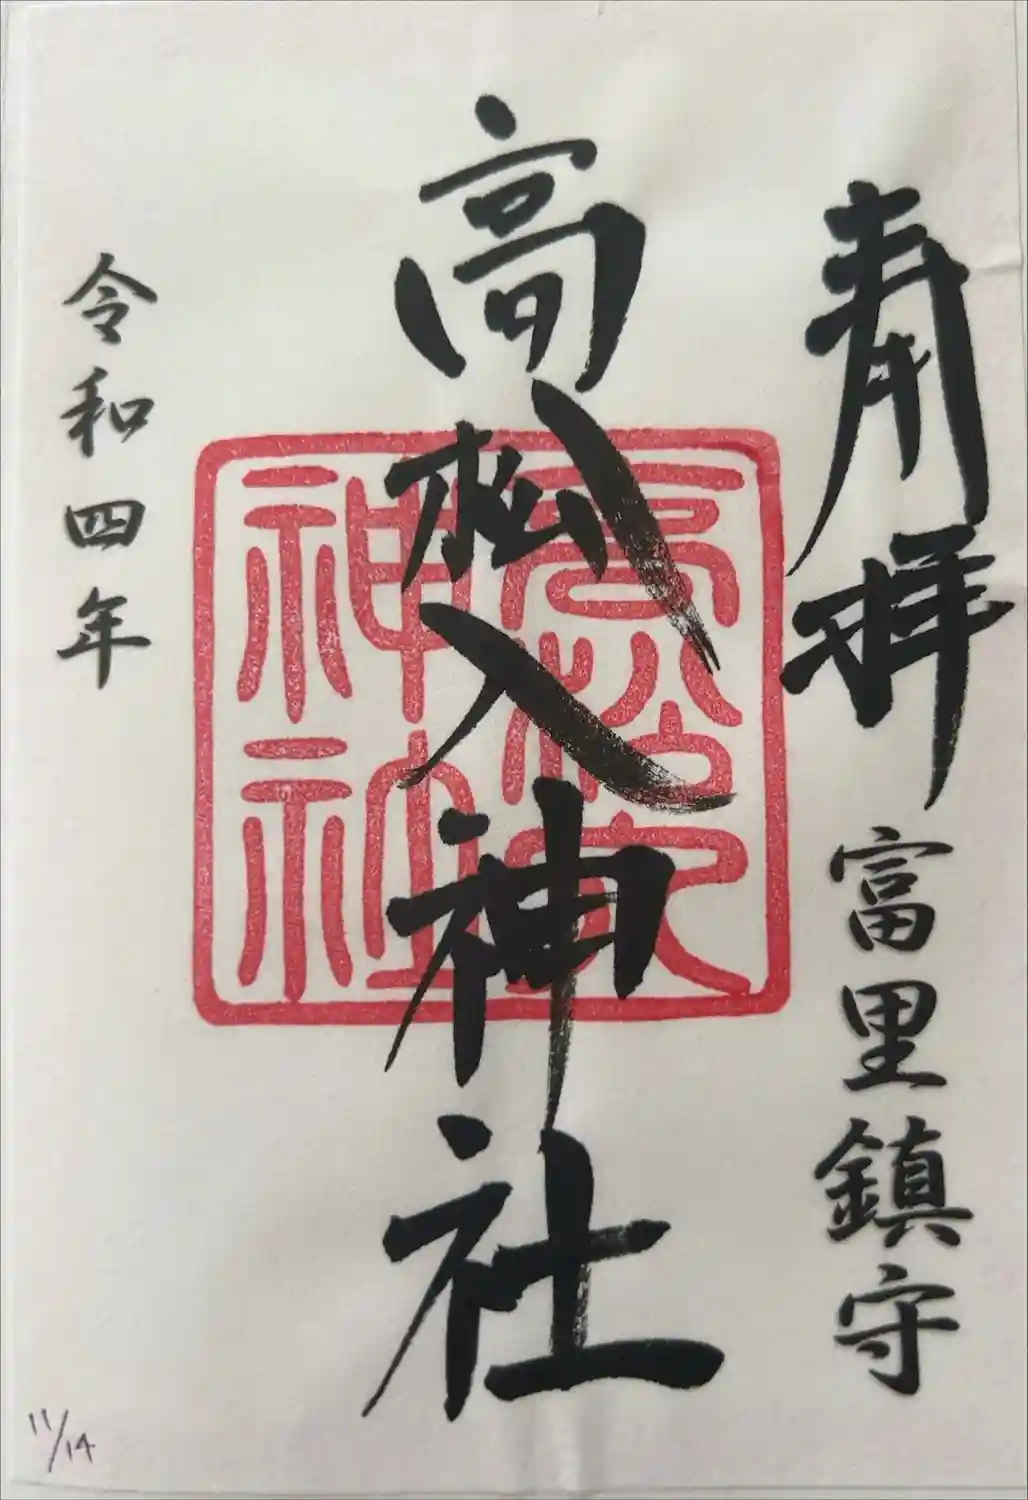 奉拝
富里鎮守
高松入神社
高松入
神社
令和四年
11/14